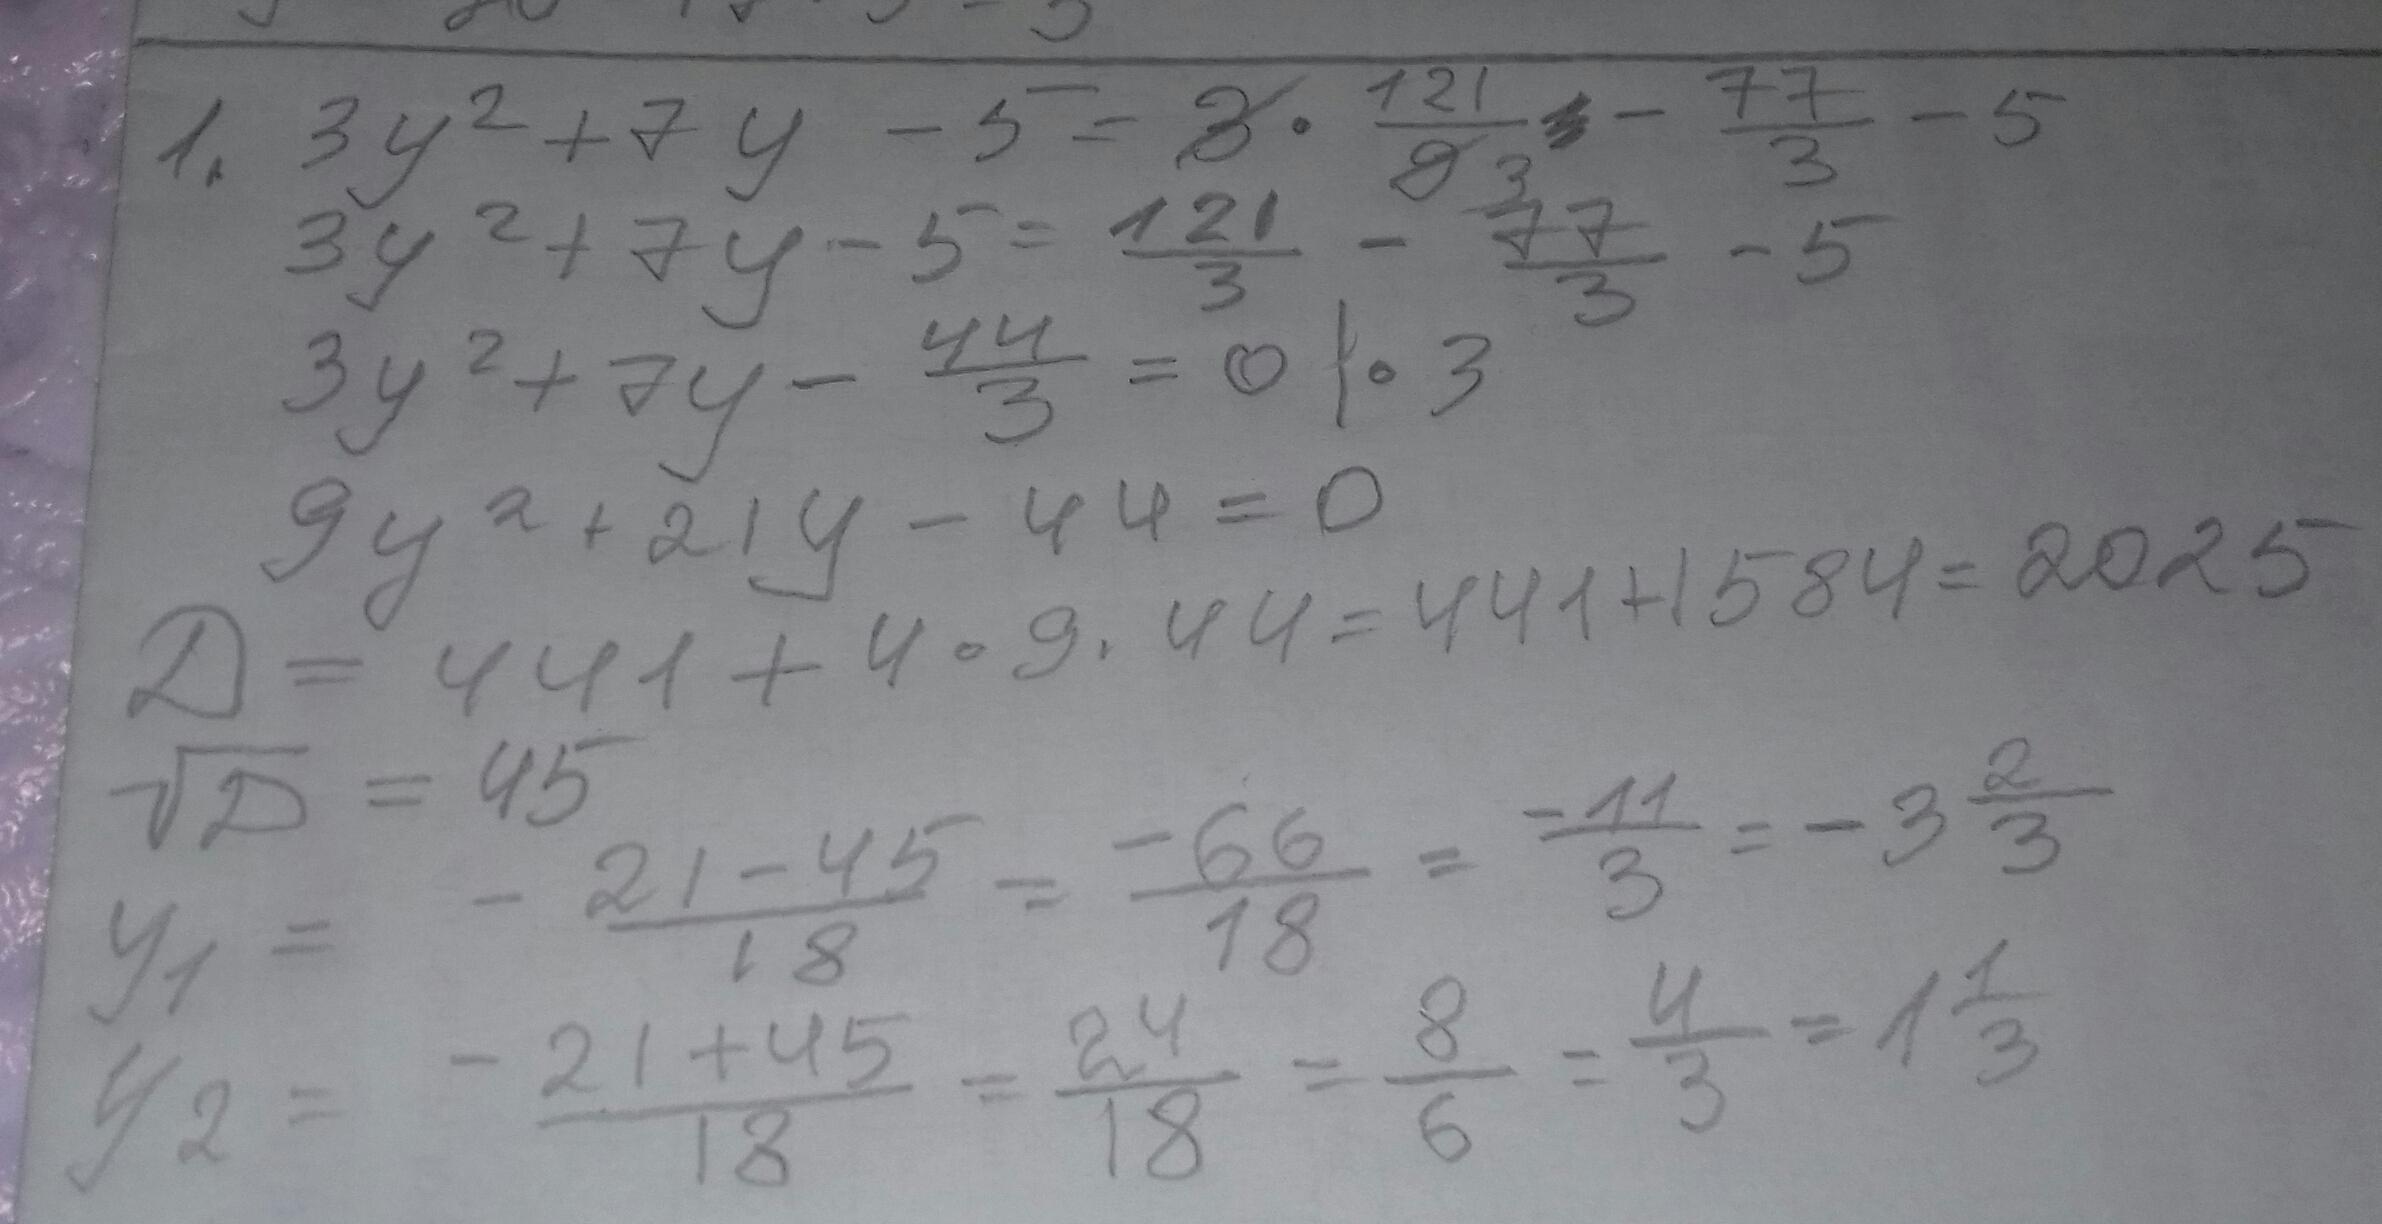 1. 3y² + 7y - 5 = 3 · 121/9 3 - 77/3 - 5
3y² + 7y - 5 = 121/3 - 77/3 - 5
3y² + 7y - 44/3 = 0 | · 3
9y² + 21y - 44 = 0
D = 441 + 4 · 9 · 44 = 441 + 1584 = 2025
√D = 45
y₁ = (-21 - 45)/18 = -66/18 = -11/3 = -3 2/3
y₂ = (-21 + 45)/18 = 24/18 = 8/6 = 4/3 = 1 1/3